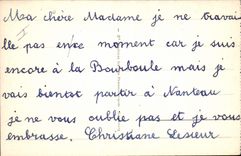 Ma chère Madame je ne travai
lle pas en ce moment car je suis
encore à la Bourboule mais je
vais bientot partir à Nanteau
je ne vous oublie pas et je vous
embrasse. Christiane Lesieur